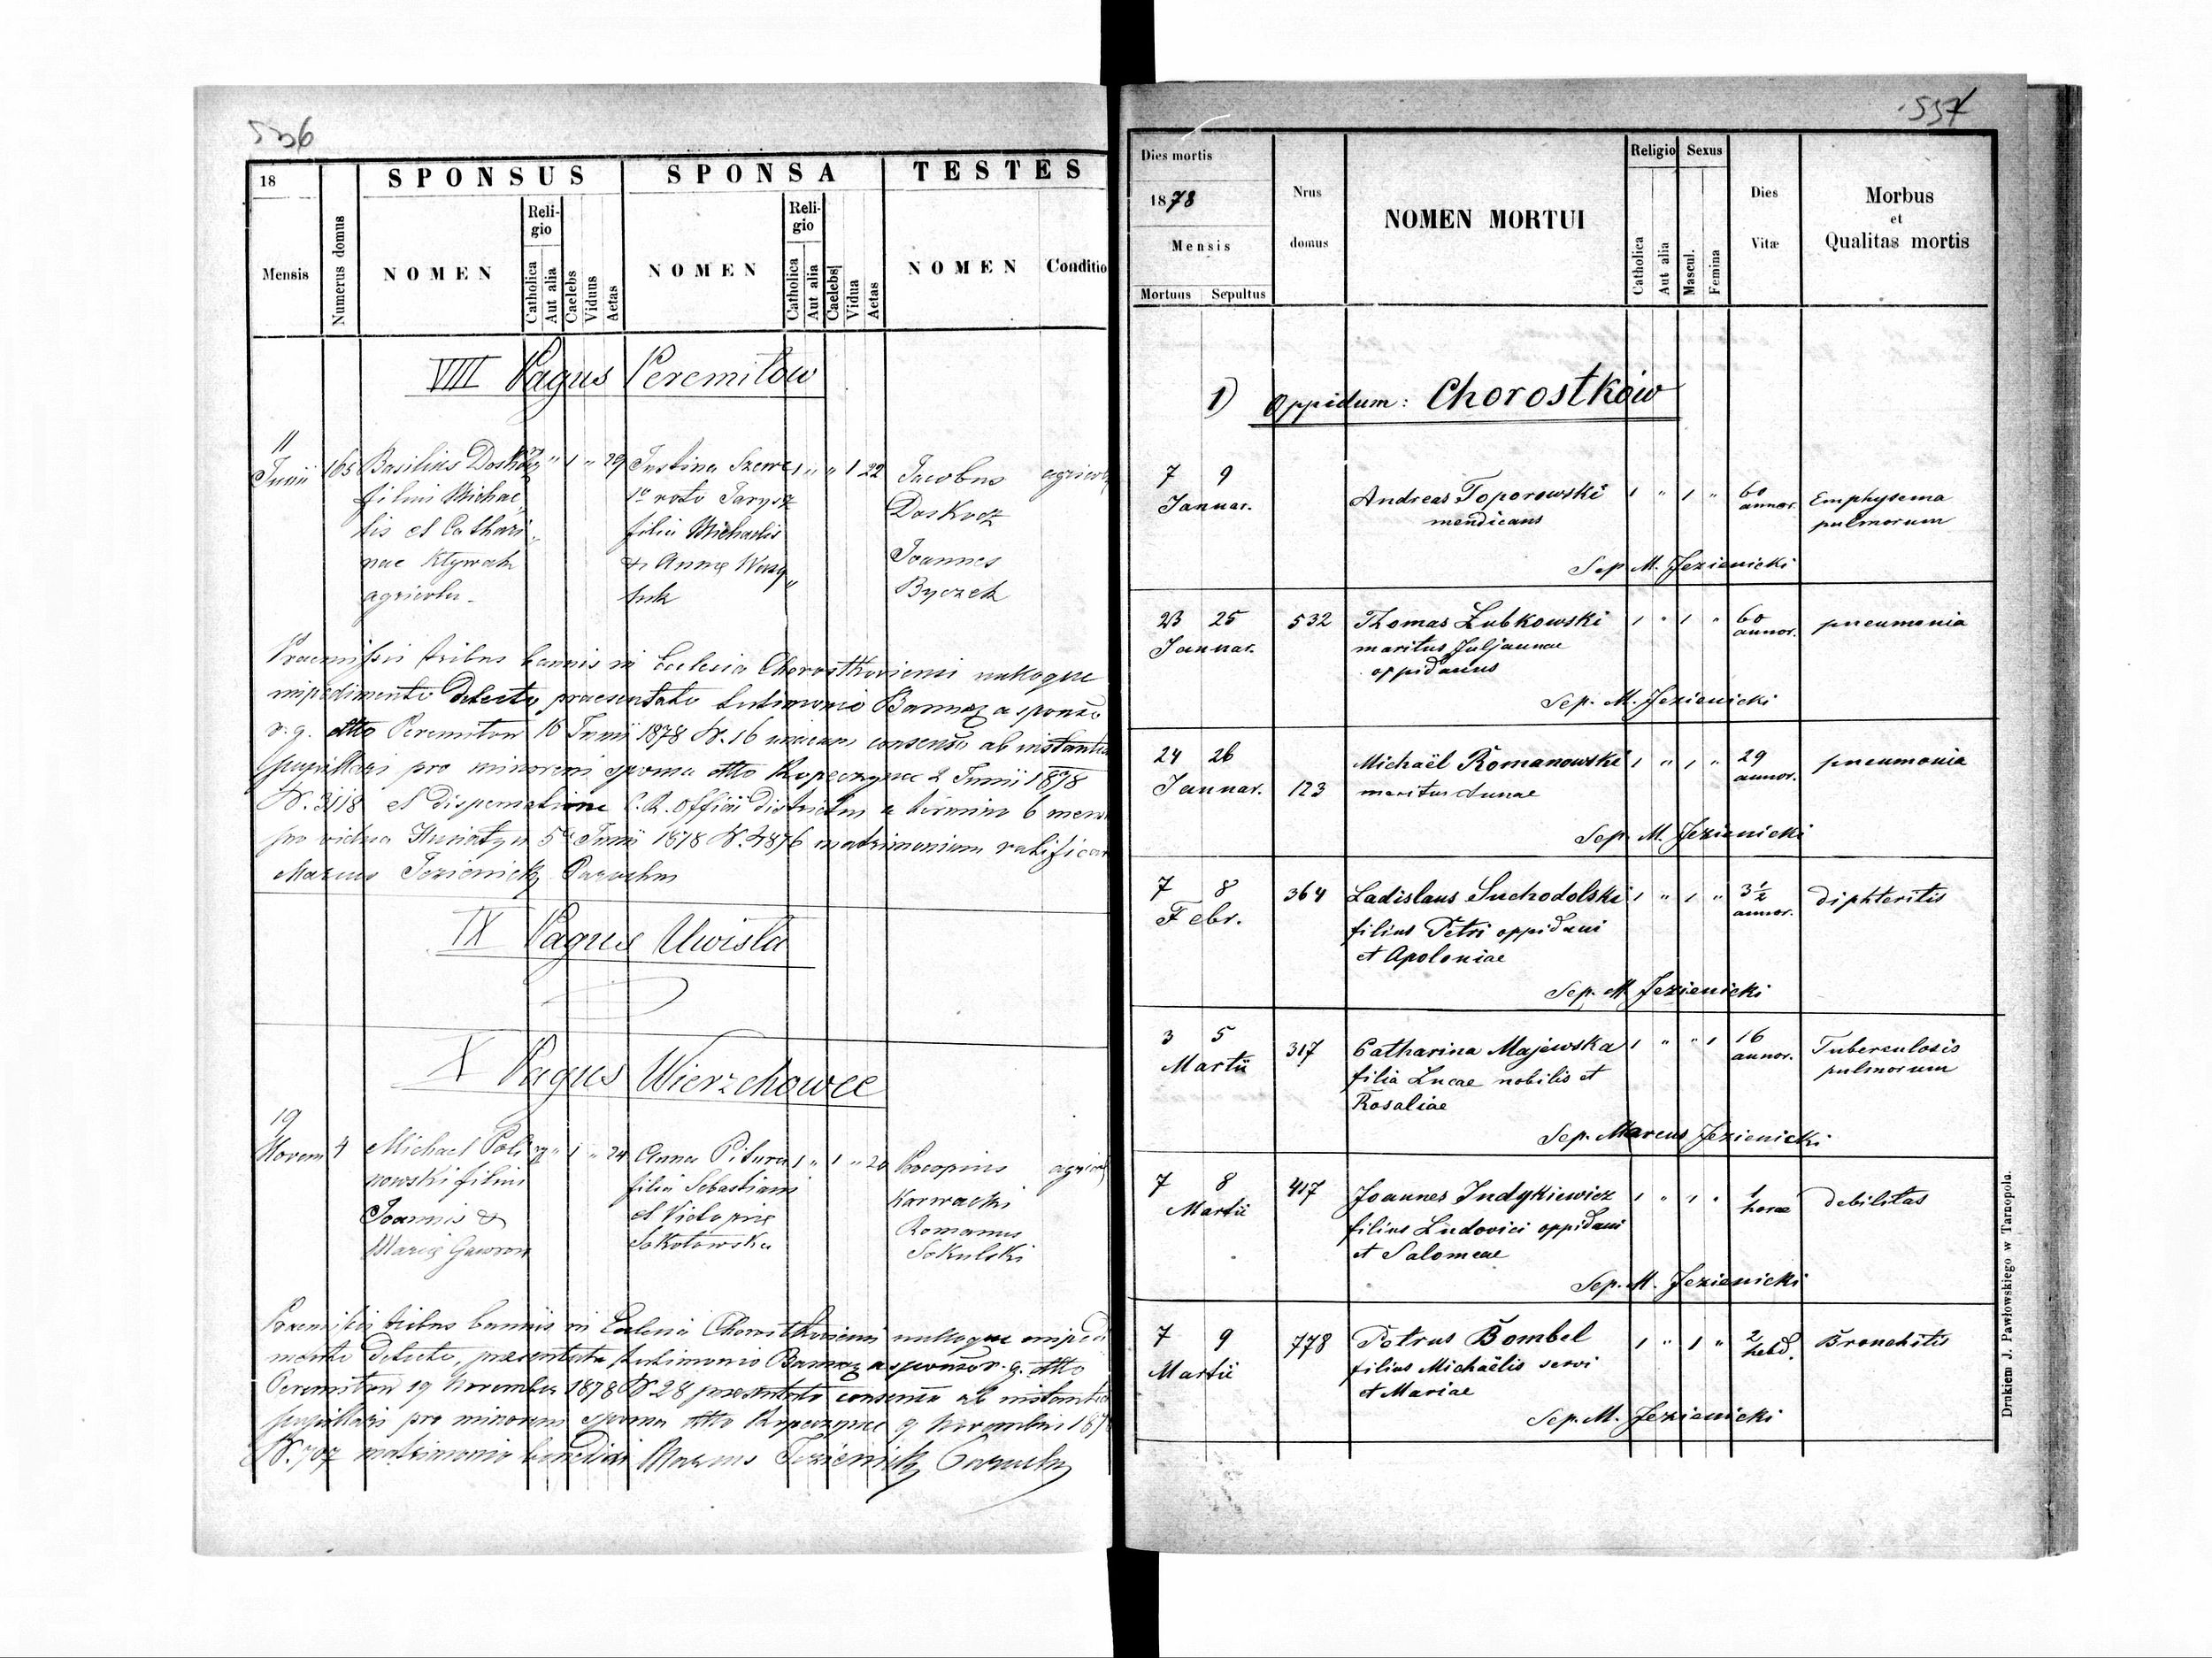 536
18
SPONSUS
SPONSA
TESTES
Mensis
Numerus domus
NOMEN
Religio
Catholica
Aut alia
Caelebs
Viduus
Aetas
NOMEN
Religio
Catholica
Aut alia
Caelebs
Vidua
Aetas
NOMEN
Conditio
VIII Pagus Peremilow
11
Junii
165
Basilius
filius Michae
lis et Cathari
nae
agricola
1 " 29
Justina
1o voto
filia Michaelis
et Annae
1 " " 1 22
Jacobus
Joannes
Byczek
Praemissis tribus bannis in Ecclesia Chorostkoviensi nulloque
impedimento detecto praesentato testimonio a sponso
r. g. dtto Peremilow 16 Junii 1878 N. 16 consensu ab instantia
pupillari pro minoreni sponsa dtto Kopeczynce 2 Junii 1878
N. 3118 et dispensatione C. R. Officii a termino 6
pro vidua 5 Junii 1878 matrimonium
Marcus Jezienicki Parochus
IX Pagus Uwisla
X Pagus Wierzchowce
19
Novem
4
Michael Poli
nowski filius
Joannis &
Mariae Gawron
" 1 " 24
Anna Pitura
filia Sebastiani
et Victoriae
Sokołowska
1 " 1 " 20
Procopius
Karwacki
Romanus
Sokulski
Praemissis tribus bannis in Ecclesia Chorostkoviensi nulloque impedi
mento detecto, praesentato testimonio a sponso r. g. dtto
Peremilow 19 November 1878 N 28 praesentato consensu ab instantia
pupillari pro minoreni sponsa dtto Kopeczynce 9 Novembris 187
N. 707 matrimonio benedixi Marcus Jezienicki Parochus
537
Dies mortis
1878
Mensis
Mortuus Sepultus
Nrus
domus
NOMEN MORTUI
Religio
Catholica
Aut alia
Sexus
Mascul.
Femina
Dies
Vitæ
Morbus
et
Qualitas mortis
1) Oppidum: Chorostków
7 9
Januar.
Andreas Toporowski
mendicans
1 " 1 "
60
annor.
Emphysema
pulmorum
Sep M. Jezienicki
23 25
Januar.
532
Thomas Zubkowski
maritus Juljannae
oppidanus
1 " 1 "
60
annor.
pneumonia
Sep. M. Jezienicki
24 26
Januar.
123
Michaël Romanowski
maritus Annae
1 " 1 "
29
annor.
pneumonia
Sep. M. Jezienicki
7 8
Febr.
364
Ladislaus Suchodolski
filius Petri oppidani
et Apoloniae
1 " 1 "
3 1/2
annor.
diphteritis
Sep. M. Jezienicki
3 5
Martii
317
Catharina Majewska
filia Lucae nobilis et
Rosaliae
1 " " 1
16
annor.
Tuberculosis
pulmorum
Sep. Marcus Jezienicki
7 8
Martii
417
Joannes Indykiewicz
filius Ludovici oppidani
et Salomeae
1 " 1 "
1
horae
debilitas
Sep. M. Jezienicki
7 9
Martii
778
Petrus Bombel
filius Michaëlis servi
et Mariae
1 " 1 "
2
hebd.
Bronchitis
Sep. M. Jezienicki
Drukiem J. Pawłowskiego w Tarnopolu.